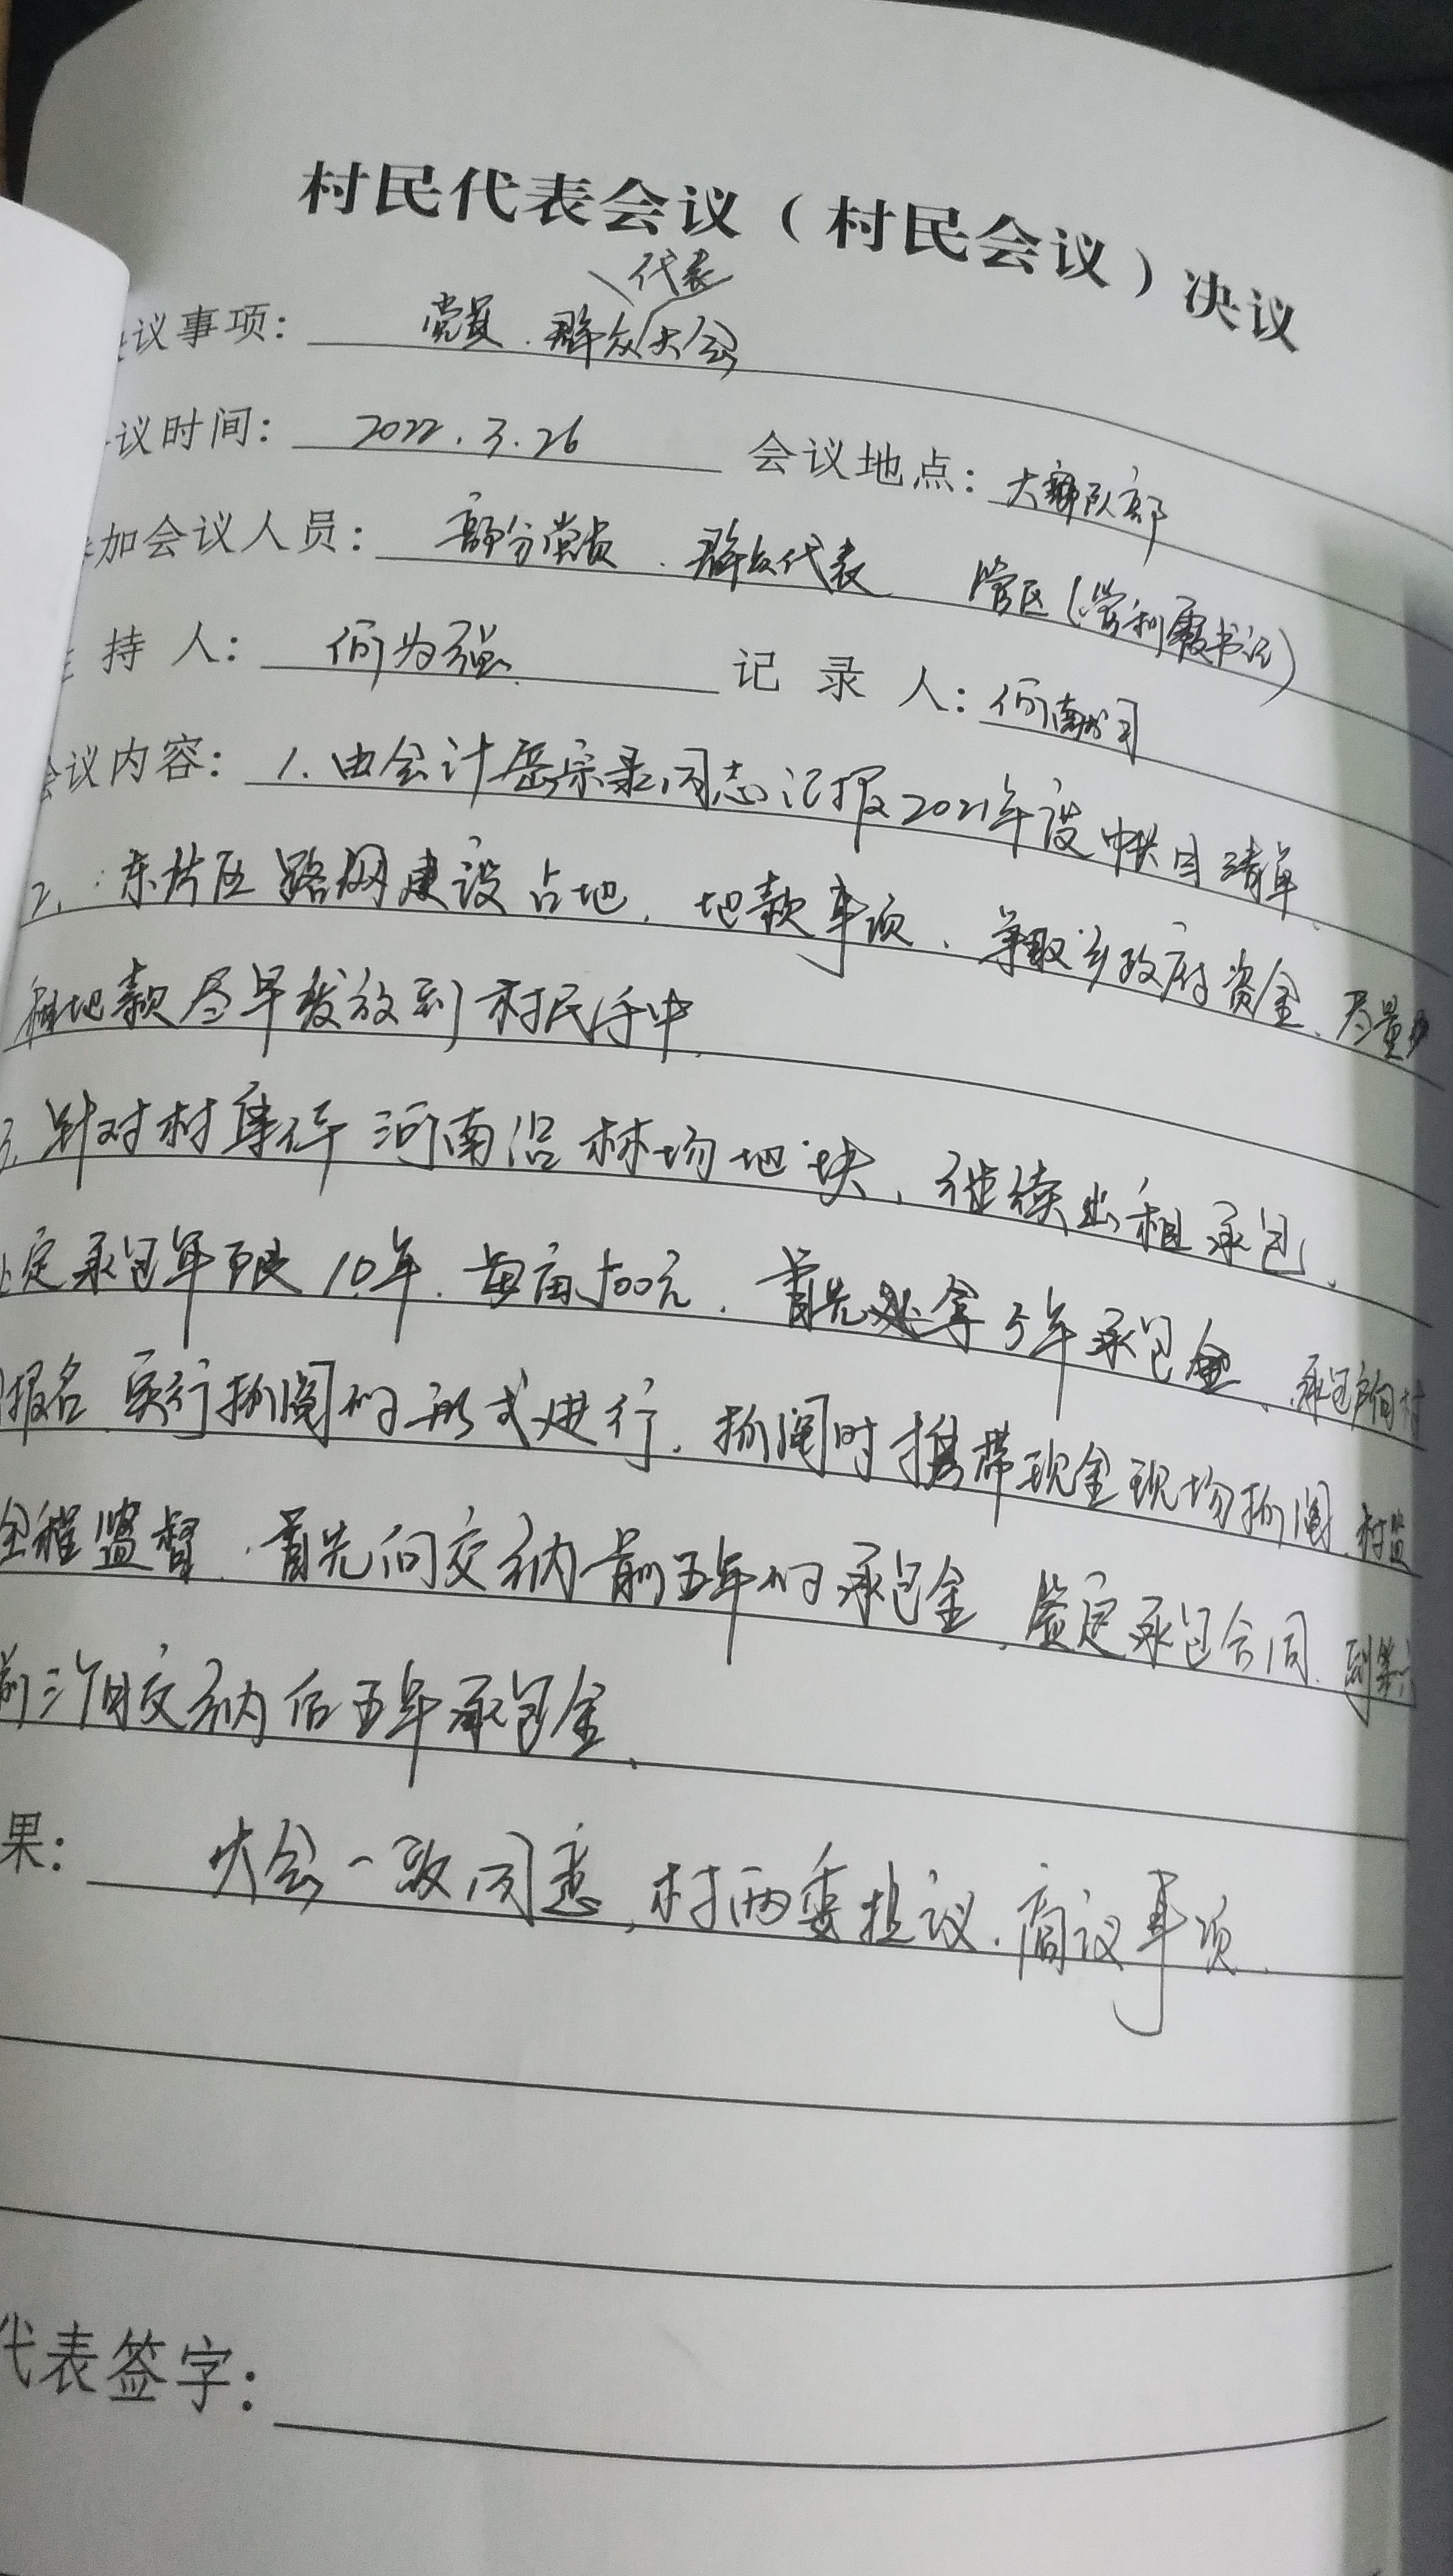 村民代表会议（村民会议）决议
代表
议事项： 党员、群众大会
议时间： 2022.3.26 会议地点：大队部
加会议人员： 部分党员、群众代表 管区（书记）
持 人： 何为强 记 录 人：何
会议内容： 1.由会计岳宗录同志汇报2021年度帐目清单、
2、东片区路网建设占地、地款事项、争取乡政府资金、尽量
地款尽早发放到村民手中、
3、针对村集体河南沿林场地块，继续出租承包、
定承包年限10年、每亩500元、首先拿5年承包金、承包户向村
报名 实行抓阄的形式进行、抓阄时携带现金现场抓阄、村监
全程监督、首先向交纳前五年的承包金、签定承包合同、到第六
前三个月交纳后五年承包金、
果： 大会一致同意，村两委提议、商议事项、
代表签字：